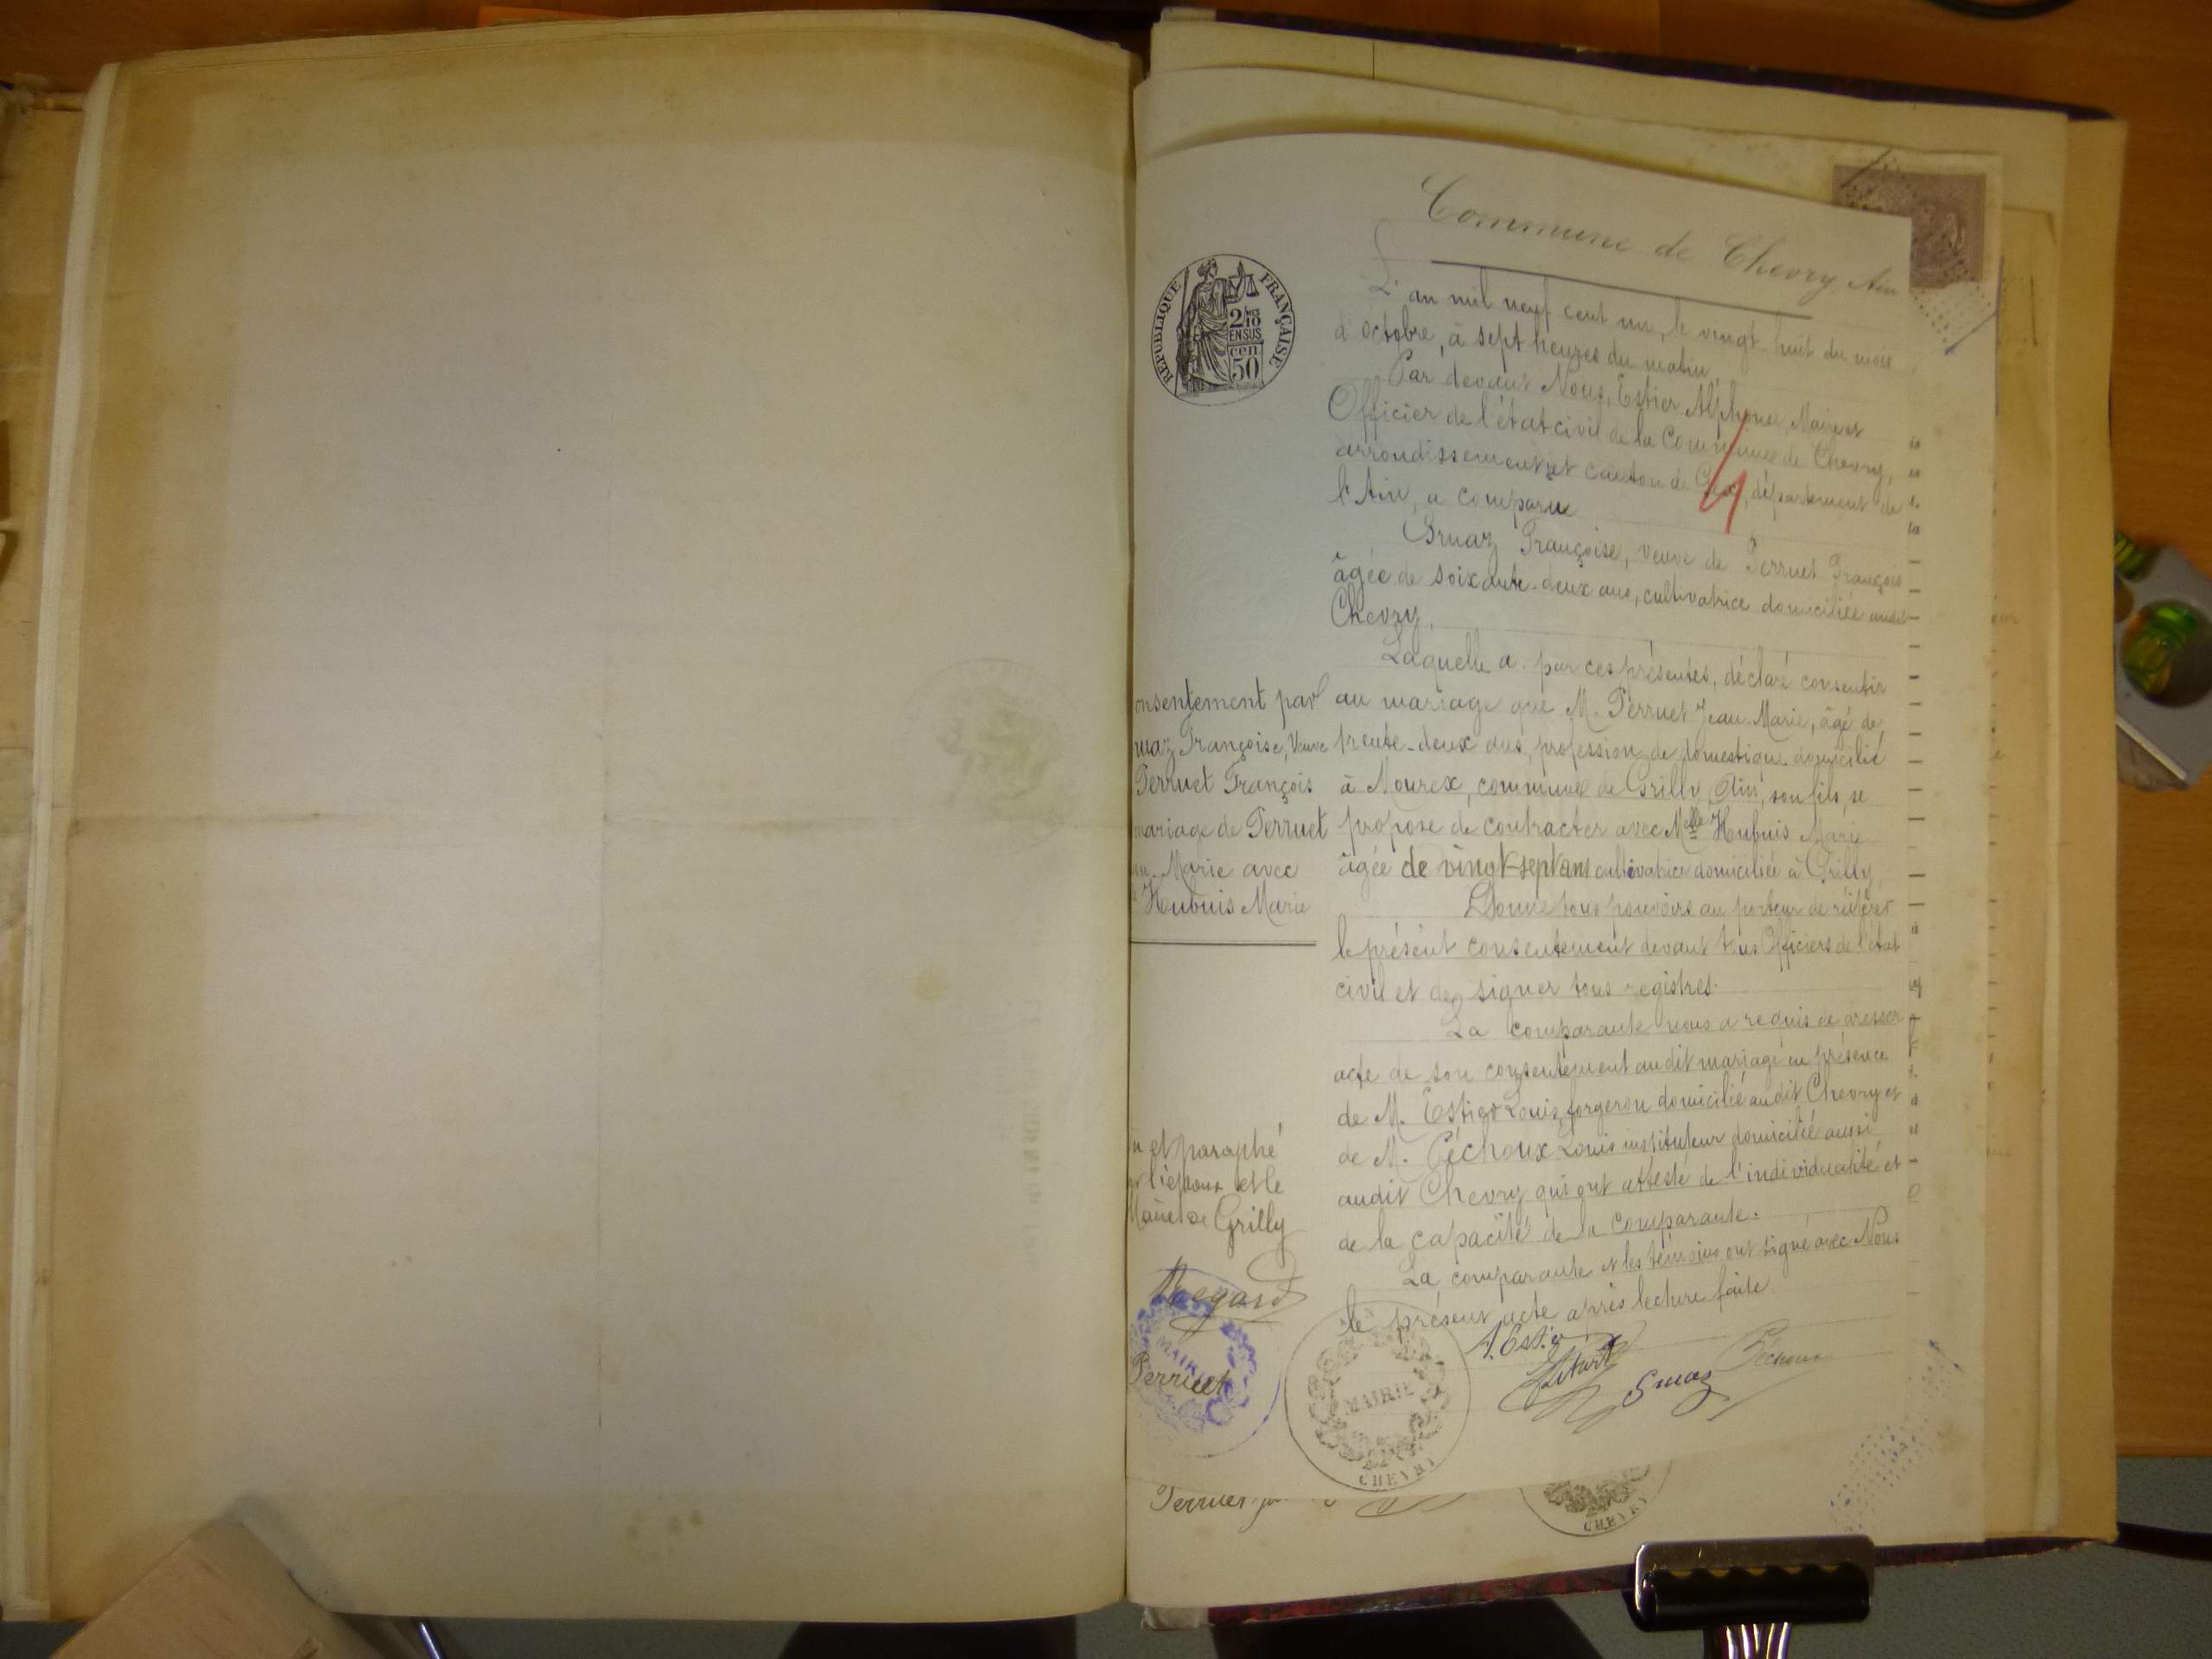 Commune de Chevry Ain
RÉPUBLIQUE FRANÇAISE
2/10 EN SUS
50 cen
L'an mil neuf cent un, le vingt-huit du mois
d'octobre, à sept heures du matin,
Par devant Nous, Estier Alphonse, Maire et
Officier de l'état civil de la Commune de Chevry,
arrondissement et canton de Gex, département de
l'Ain, a comparu
Gruaz Françoise, veuve de Perruet François
âgée de soixante-deux ans, cultivatrice domiciliée audit
Chevry.
Laquelle a par ces présentes, déclaré consentir
au mariage que M. Perruet Jean-Marie, âgé de
trente-deux ans, profession de domestique domicilié
à Mourex, commune de Grilly, Ain, son fils, se
propose de contracter avec Melle Hubuis Marie
âgée de vingt-sept ans cultivatrice domiciliée à Grilly,
Donne tous pouvoirs au porteur de réitérer
le présent consentement devant tous Officiers de l'état
civil et de signer tous registres.
La comparante nous a requis de dresser
acte de son consentement audit mariage en présence
de M. Estier Louis, forgeron domicilié audit Chevry et
de M. Péchoux Louis instituteur domicilié aussi
audit Chevry qui ont attesté de l'individualité et
de la capacité de la comparante.
La comparante et les témoins ont signé avec Nous
le présent acte après lecture faite.
A. Estier
Gruaz
Péchoux
MAIRIE
CHEVRY
onsentement par
uaz Françoise, Veuve
Perruet François
mariage de Perruet
an-Marie avec
Hubuis Marie
u et paraphé
l'époux et le
Maire de Grilly
Regard
MAIRIE
Perruet
Perruet
CHEVRY